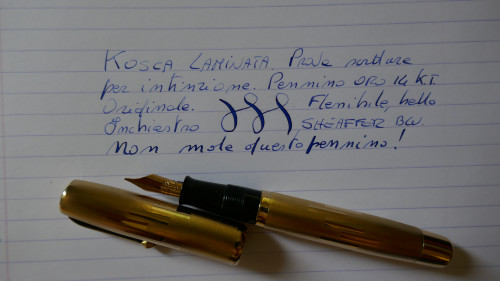 KOSCA LAMINATA. Prova scrittura
per intinzione. Pennino ORO 14 KT.
Originale. Flessibile, bello
Inchiostro SHEAFFER BW.
Non male questo pennino!